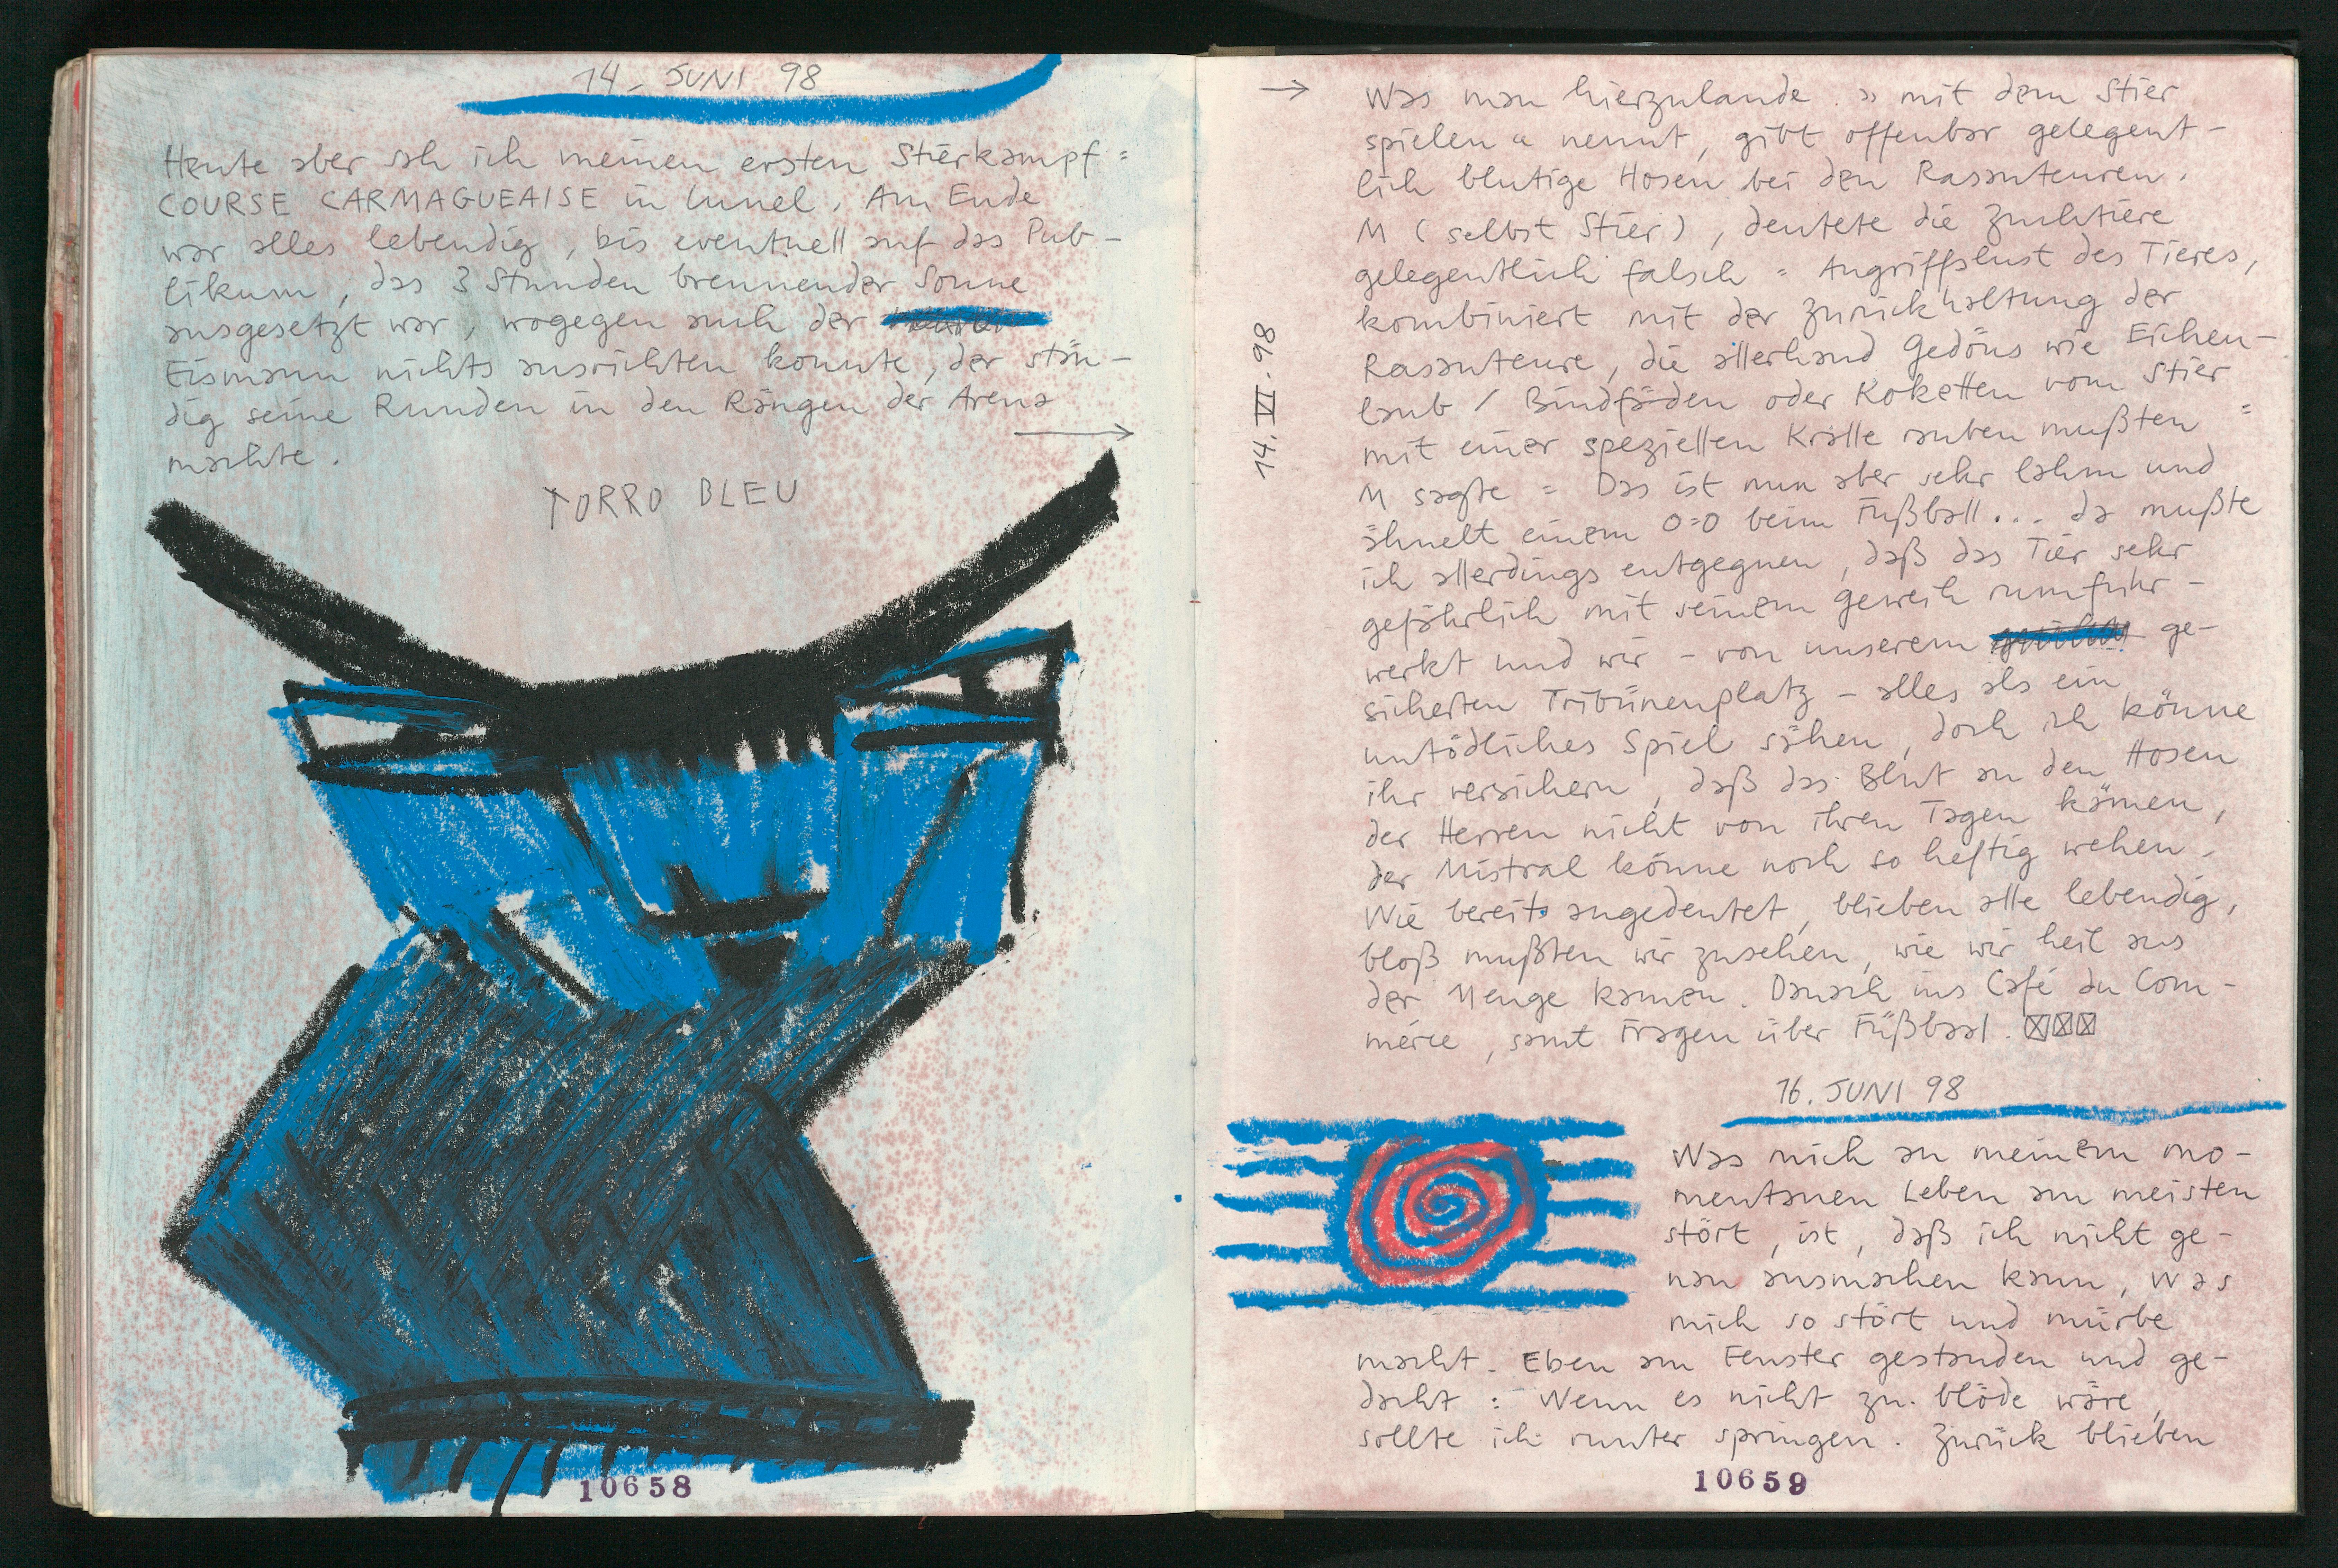 14. JUNI 98
Heute aber sah ich meinen ersten Stierkampf =
COURSE CARMAGUEAISE in Lunel. Am Ende
war alles lebendig, bis eventuell auf das Pub-
likum, das 3 Stunden brennender Sonne
ausgesetzt war, wogegen auch der
Eismann nichts ausrichten konnte, der stän-
dig seine Runden in den Rängen der Arena
machte. →
TORRO BLEU
10658
→ Was man hierzulande »mit dem Stier
spielen« nennt, gibt offenbar gelegent-
lich blutige Hosen bei den Rasanteuren.
M (selbst Stier), deutete die Zuchtiere
gelegentlich falsch = Angriffslust des Tieres,
kombiniert mit der Zurückhaltung der
Rasanteure, die allerhand Gedöns wie Eichen-
laub / Bindfäden oder Koketten vom Stier
mit einer speziellen Kralle rauben mußten =
M sagte = Das ist nun aber sehr lahm und
ähnelt einem 0=0 beim Fußball... da mußte
ich allerdings entgegnen, daß das Tier sehr
gefährlich mit seinem Geweih rumfuhr-
werkt und wir - von unserem ge-
sicherten Tribünenplatz - alles als ein
untödliches Spiel sähen, doch ich könne
ihr versichern, daß das Blut an den Hosen
der Herren nicht von ihren Tagen kämen,
der Mistral könne noch so heftig wehen.
Wie bereits angedeutet, blieben alle lebendig,
bloß mußten wir zusehen, wie wir heil aus
der Menge kamen. Danach ins Café du Com-
merce, samt Fragen über Füßbaal. ☒☒☒
14. VI. 98
16. JUNI 98
Was mich an meinem mo-
mentanen Leben am meisten
stört, ist, daß ich nicht ge-
nau ausmachen kann, was
mich so stört und mürbe
macht. Eben am Fenster gestanden und ge-
dacht : Wenn es nicht zu blöde wäre,
sollte ich runter springen. Zurück blieben
10659